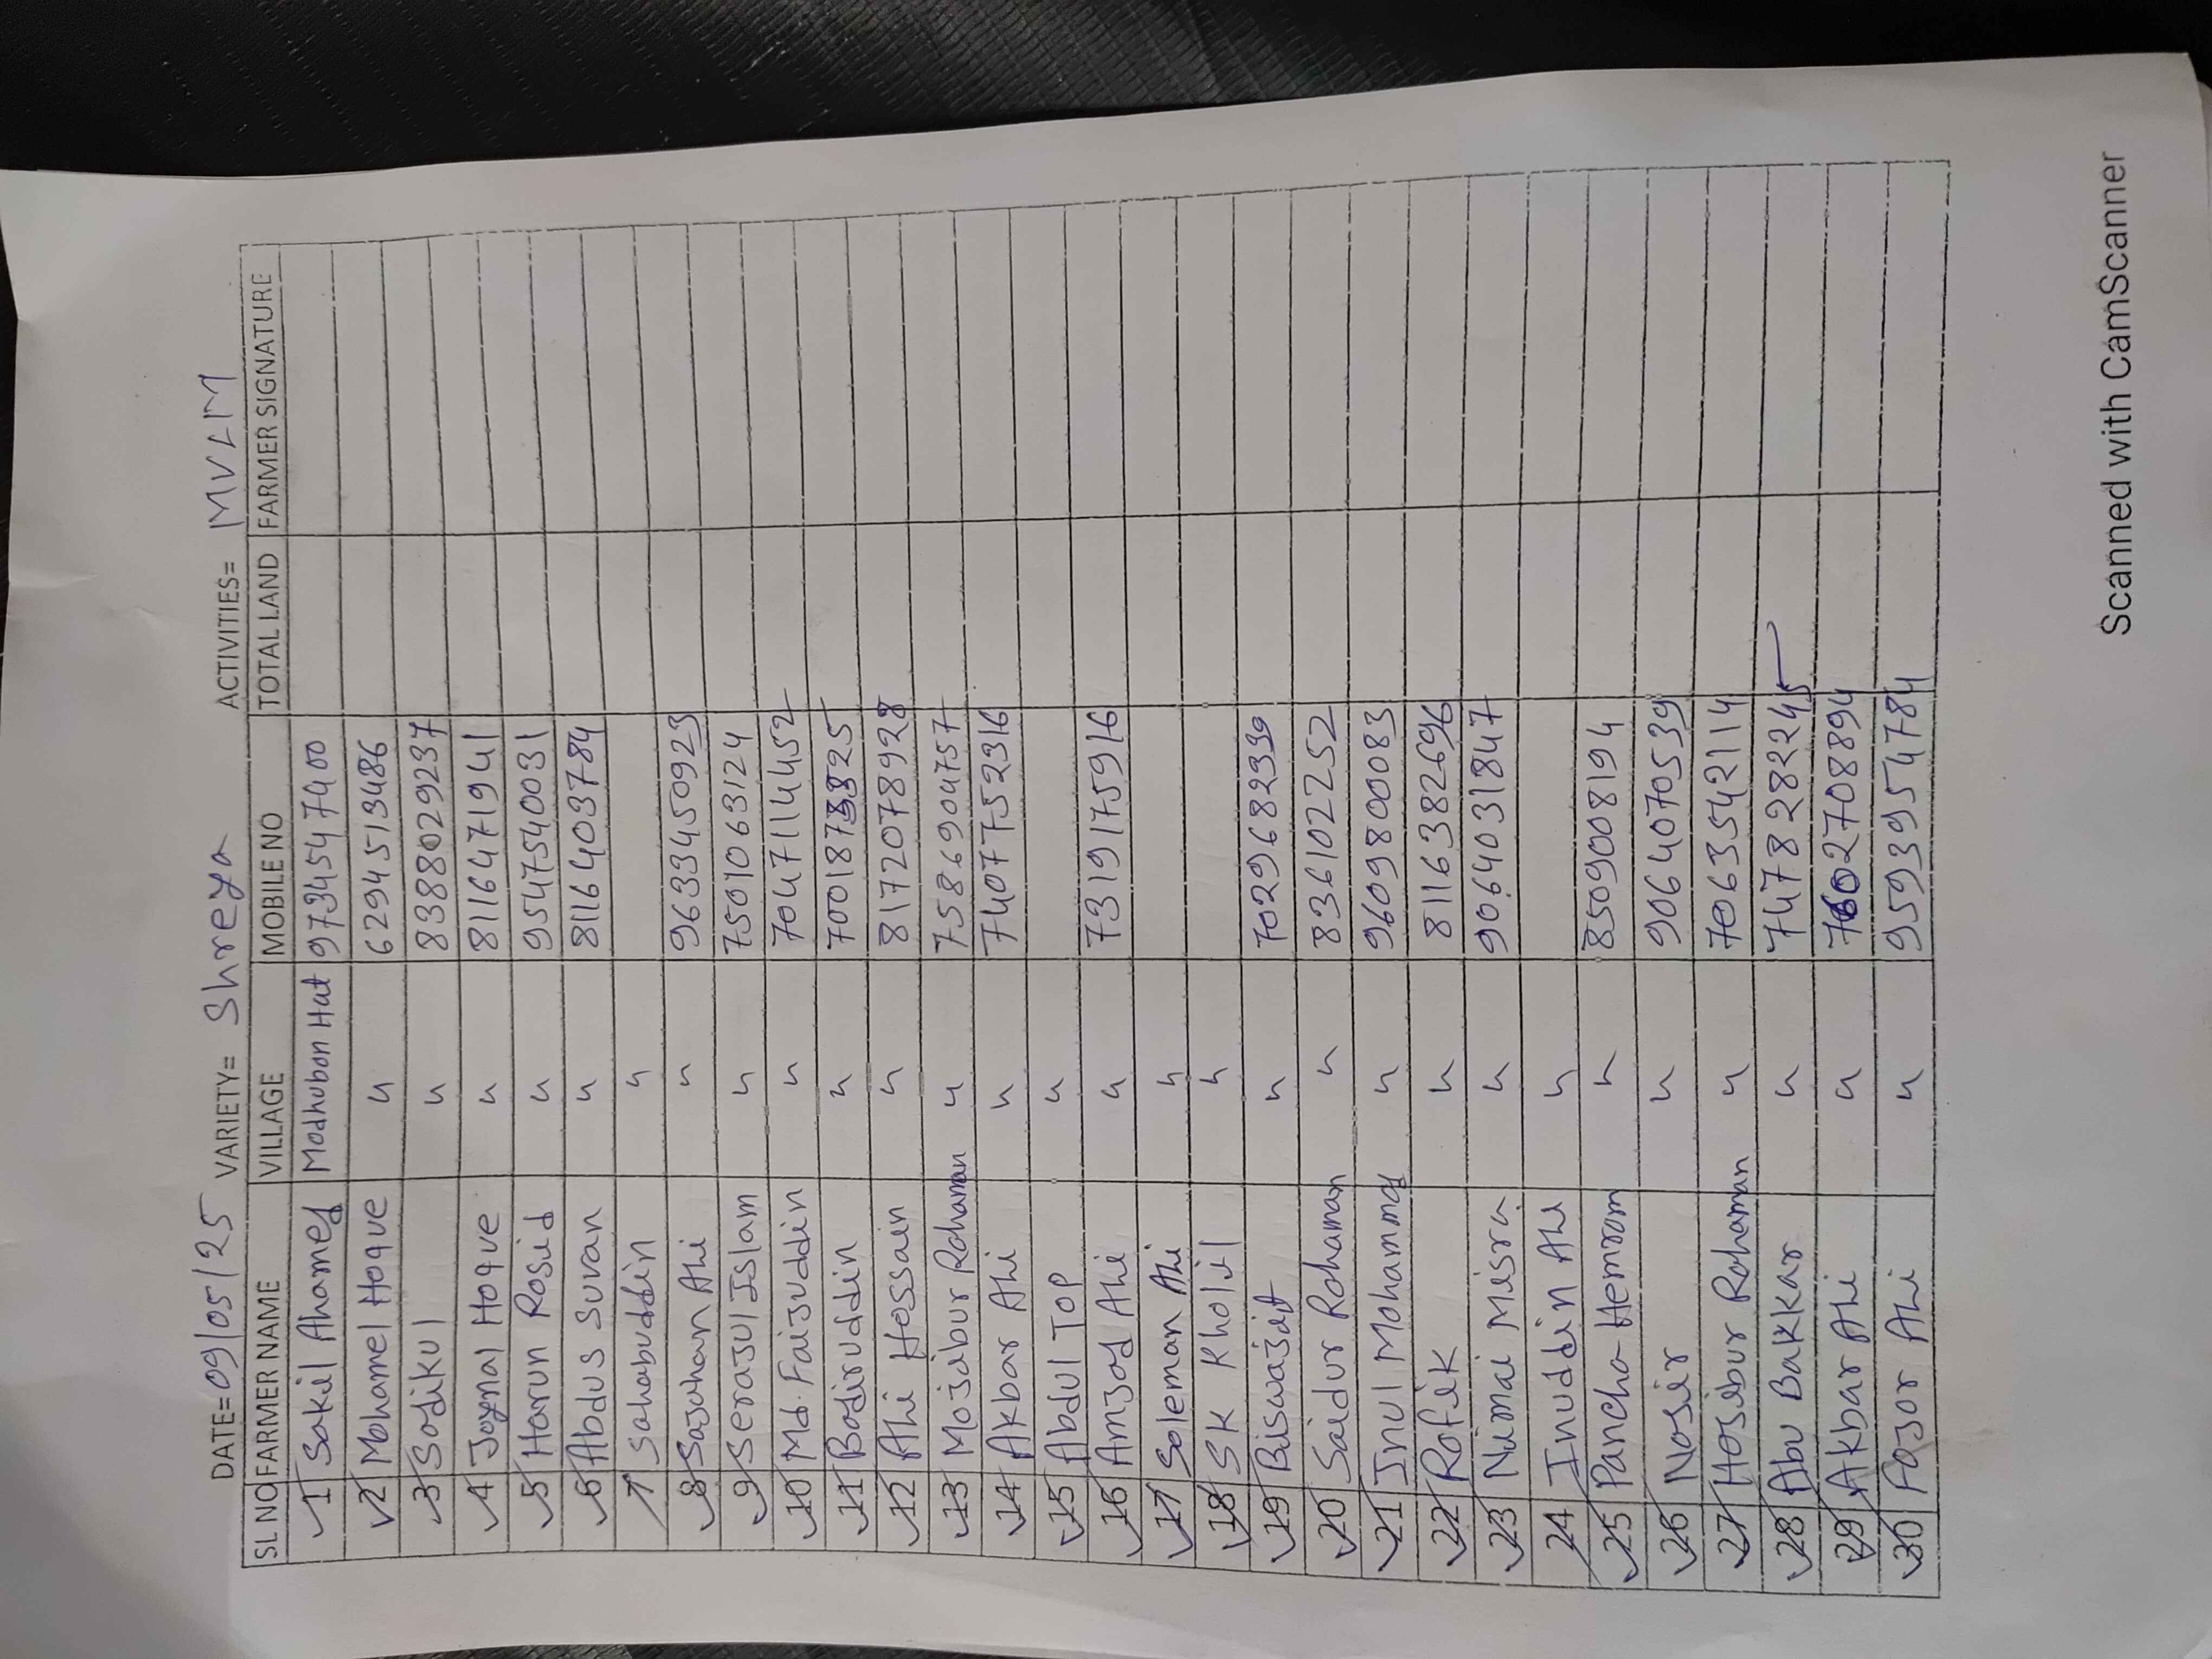 DATE=09/05/25 VARIETY= Shreya ACTIVITIES= MVLM
SL NO FARMER NAME VILLAGE MOBILE NO TOTAL LAND FARMER SIGNATURE
1 Sakil Ahamed Madhubon Hat 9734547400
2 Mohamel Hoque " 6294513486
3 Sadikul " 8388029237
4 Joynal Hoque " 8116471941
5 Harun Rosid " 9547540031
6 Abdus Suvan " 8116403784
7 Sahabuddin "
8 Sajahan Ali " 9633450923
9 Serajul Islam " 7501063124
10 Md. Faijuddin " 7047114452
11 Badiruddin " 7001873825
12 Ali Hossain " 8172078928
13 Mojibur Rohaman " 7586904757
14 Akbar Ali " 7407752316
15 Abdul TOP "
16 Amjad Ali " 7319175916
17 Soleman Ali "
18 SK Kholil "
19 Biswajit " 7029682339
20 Saidur Rohaman " 8361022252
21 Inul Mohammad " 9609800083
22 Rofik " 8116382696
23 Nimai Misra " 9064031847
24 Inuddin Ali "
25 Pancha Hemrom " 8509008194
26 Nosir " 9064070539
27 Hosibur Rohaman " 7063542114
28 Abu Bakkar " 7478282245
29 Akbar Ali " 7602708894
30 Fajor Ali " 9593954784
Scanned with CamScanner